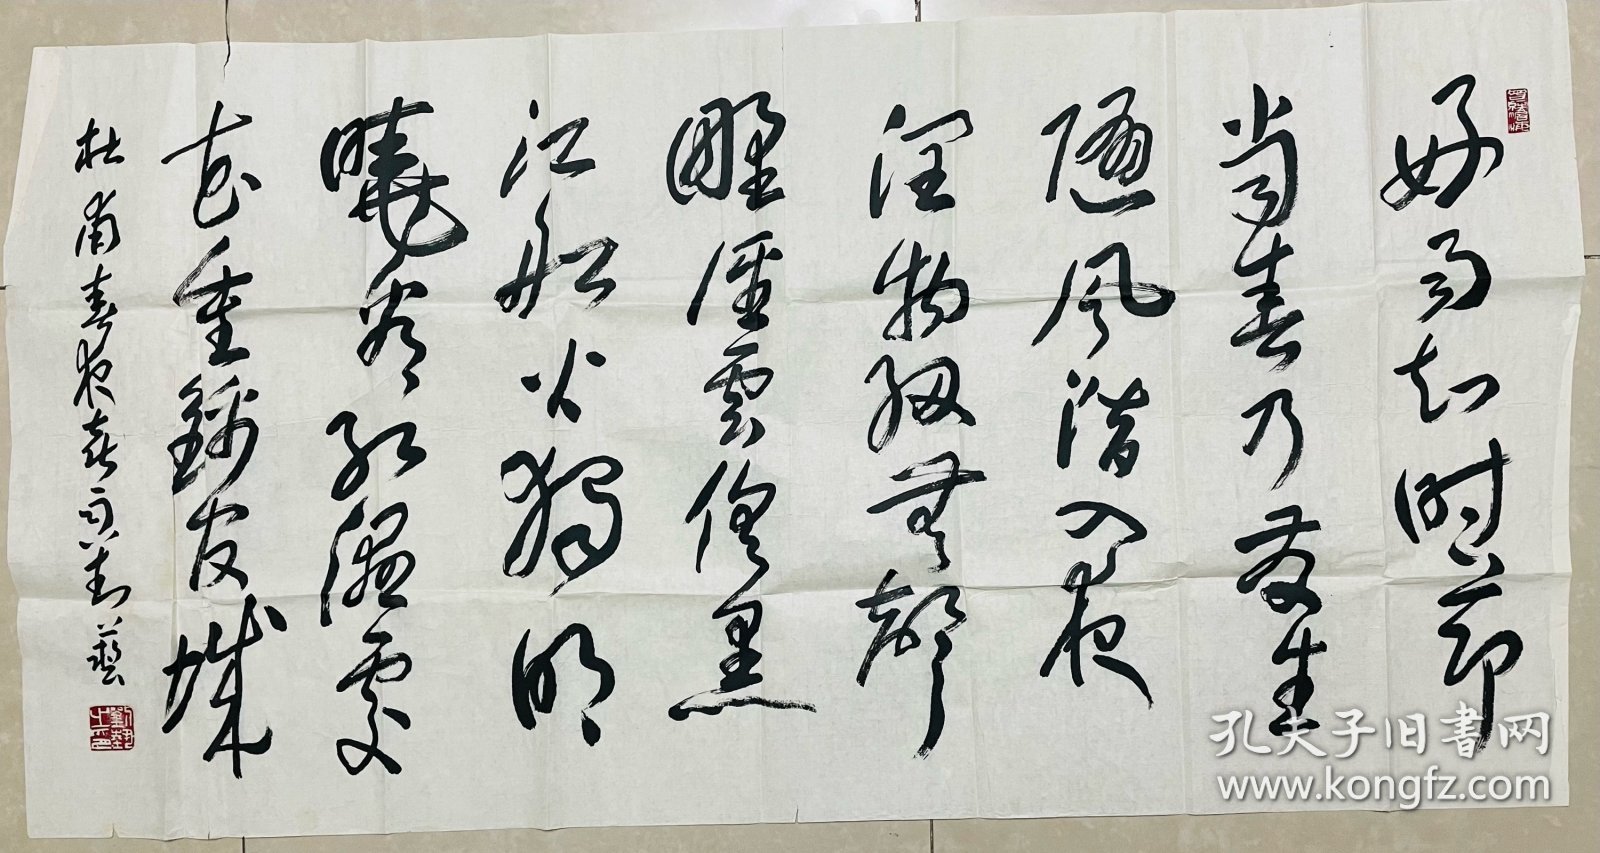 好雨知时节
当春乃发生
随风潜入夜
润物细无声
野径雲俱黑
江船火独明
晓看红湿处
花重锦官城
杜甫春夜喜雨刘艺
刘艺之印
孔夫子旧书网
www.kongfz.com